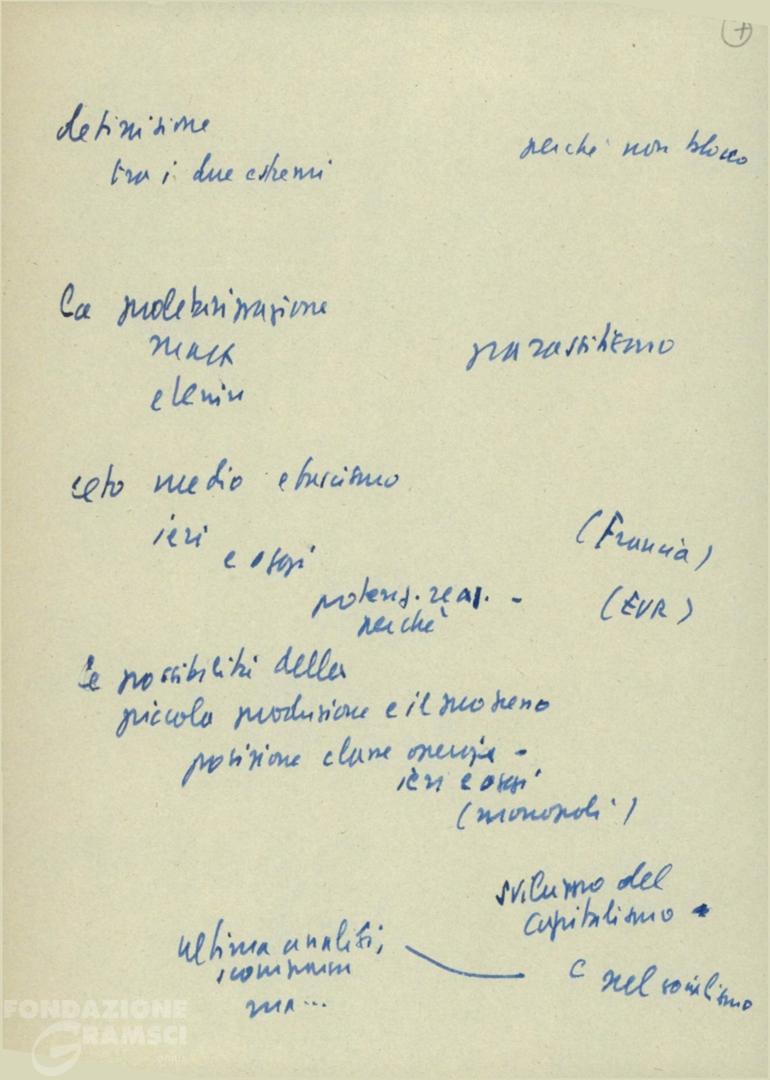 definizione
tra i due estremi
perché non blocco
la proletarizzazione
Marx
e Lenin
parassitismo
ceto medio e fascismo
ieri
e oggi
(Francia)
potenz. reaz. -
perché
(EUR)
le possibilità della
piccola produzione e il progresso
posizione classe operaia -
ieri e oggi
(monopoli)
sviluppo del
capitalismo
ultima analisi,
scompaiono
ma...
e nel socialismo
FONDAZIONE
GRAMSCI